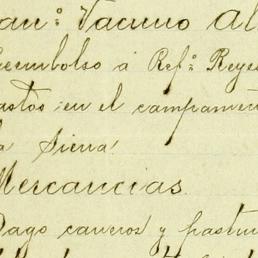 an.º Vacuno Al
eembolso á Ref.º Reye
astos en el campamen
a Sierra
Mercancias
Pago carros y pastu